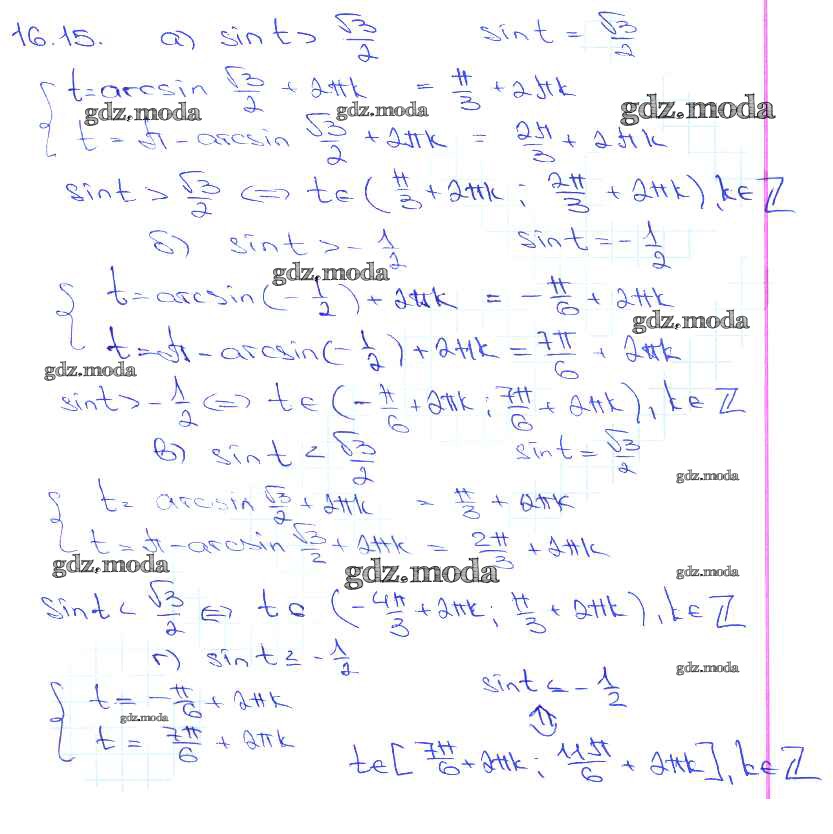 16.15. а) sint > √3/2 sint = √3/2
{ t = arcsin √3/2 + 2πk = π/3 + 2πk
gdz.moda gdz.moda gdz.moda
t = π - arcsin √3/2 + 2πk = 2π/3 + 2πk
sint > √3/2 <=> t∈(π/3 + 2πk ; 2π/3 + 2πk), k∈Z
б) sint > -1/2 sint = -1/2
gdz.moda
{ t = arcsin(-1/2) + 2πk = -π/6 + 2πk
gdz.moda
t = π - arcsin(-1/2) + 2πk = 7π/6 + 2πk
gdz.moda
sint > -1/2 <=> t∈(-π/6 + 2πk ; 7π/6 + 2πk), k∈Z
в) sint < √3/2 sint = √3/2
gdz.moda
{ t = arcsin √3/2 + 2πk = π/3 + 2πk
t = π - arcsin √3/2 + 2πk = 2π/3 + 2πk
gdz.moda gdz.moda gdz.moda
sint < √3/2 <=> t∈(-4π/3 + 2πk ; π/3 + 2πk), k∈Z
г) sint ≤ -1/2
gdz.moda
sint ≤ -1/2
{ t = -π/6 + 2πk
gdz.moda
t = 7π/6 + 2πk
t∈[7π/6 + 2πk ; 11π/6 + 2πk], k∈Z